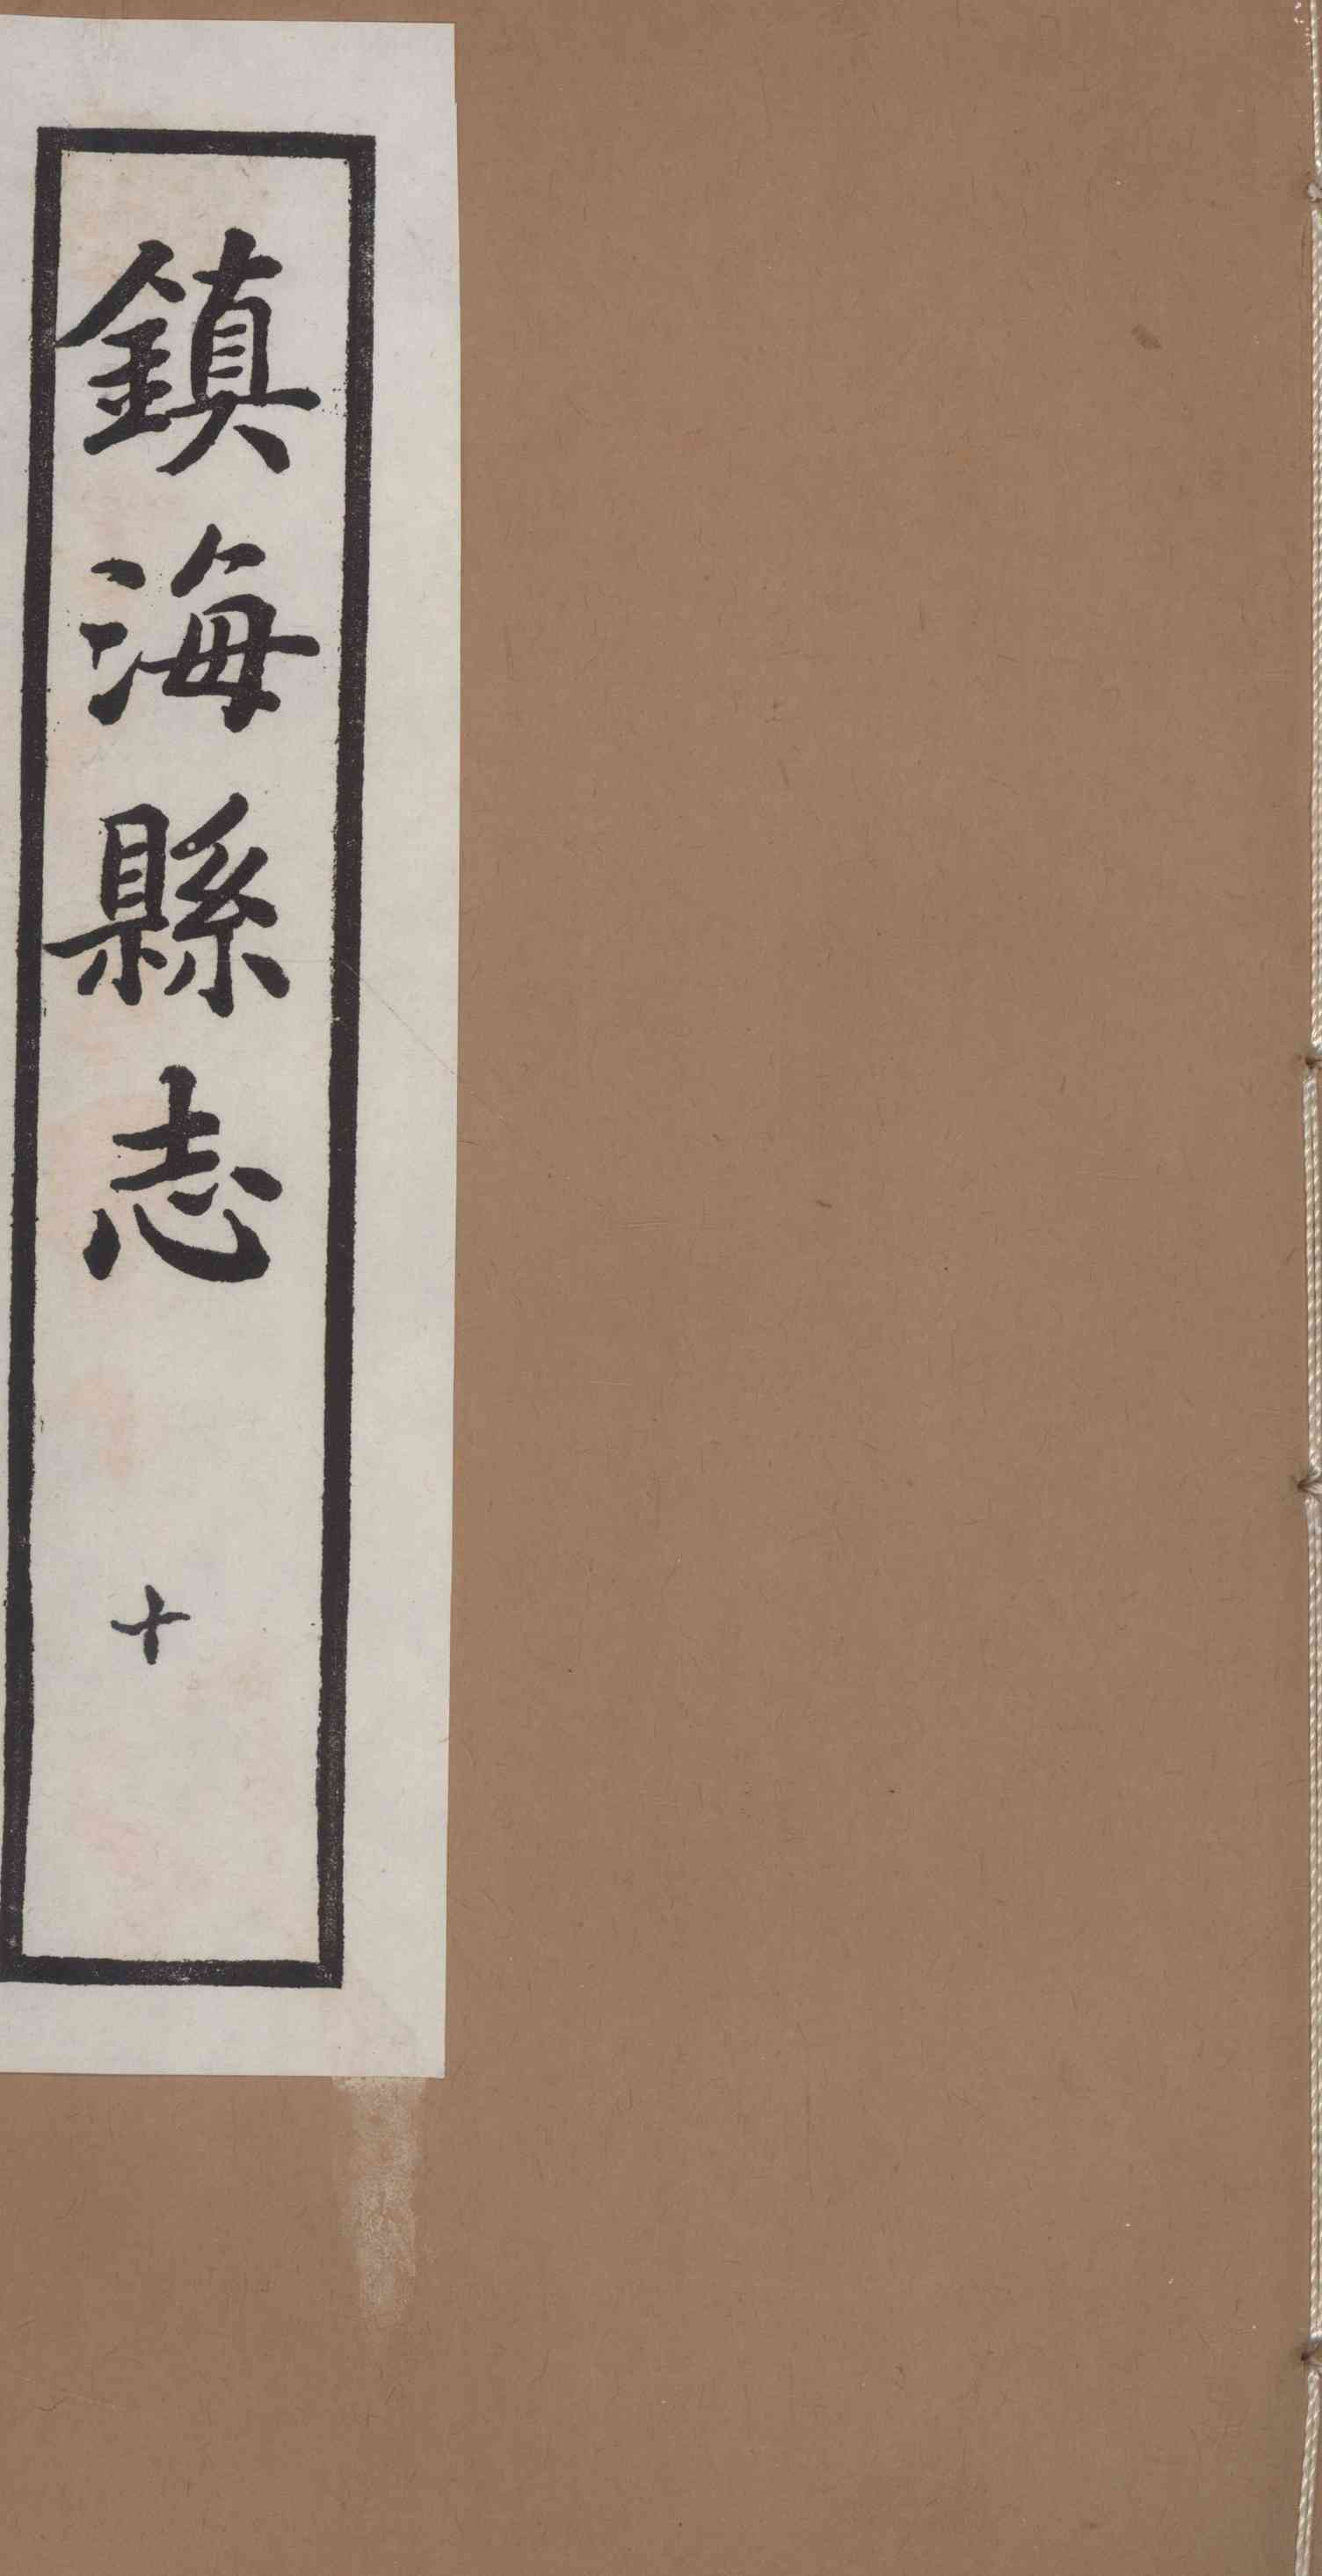 鎮海縣志
十